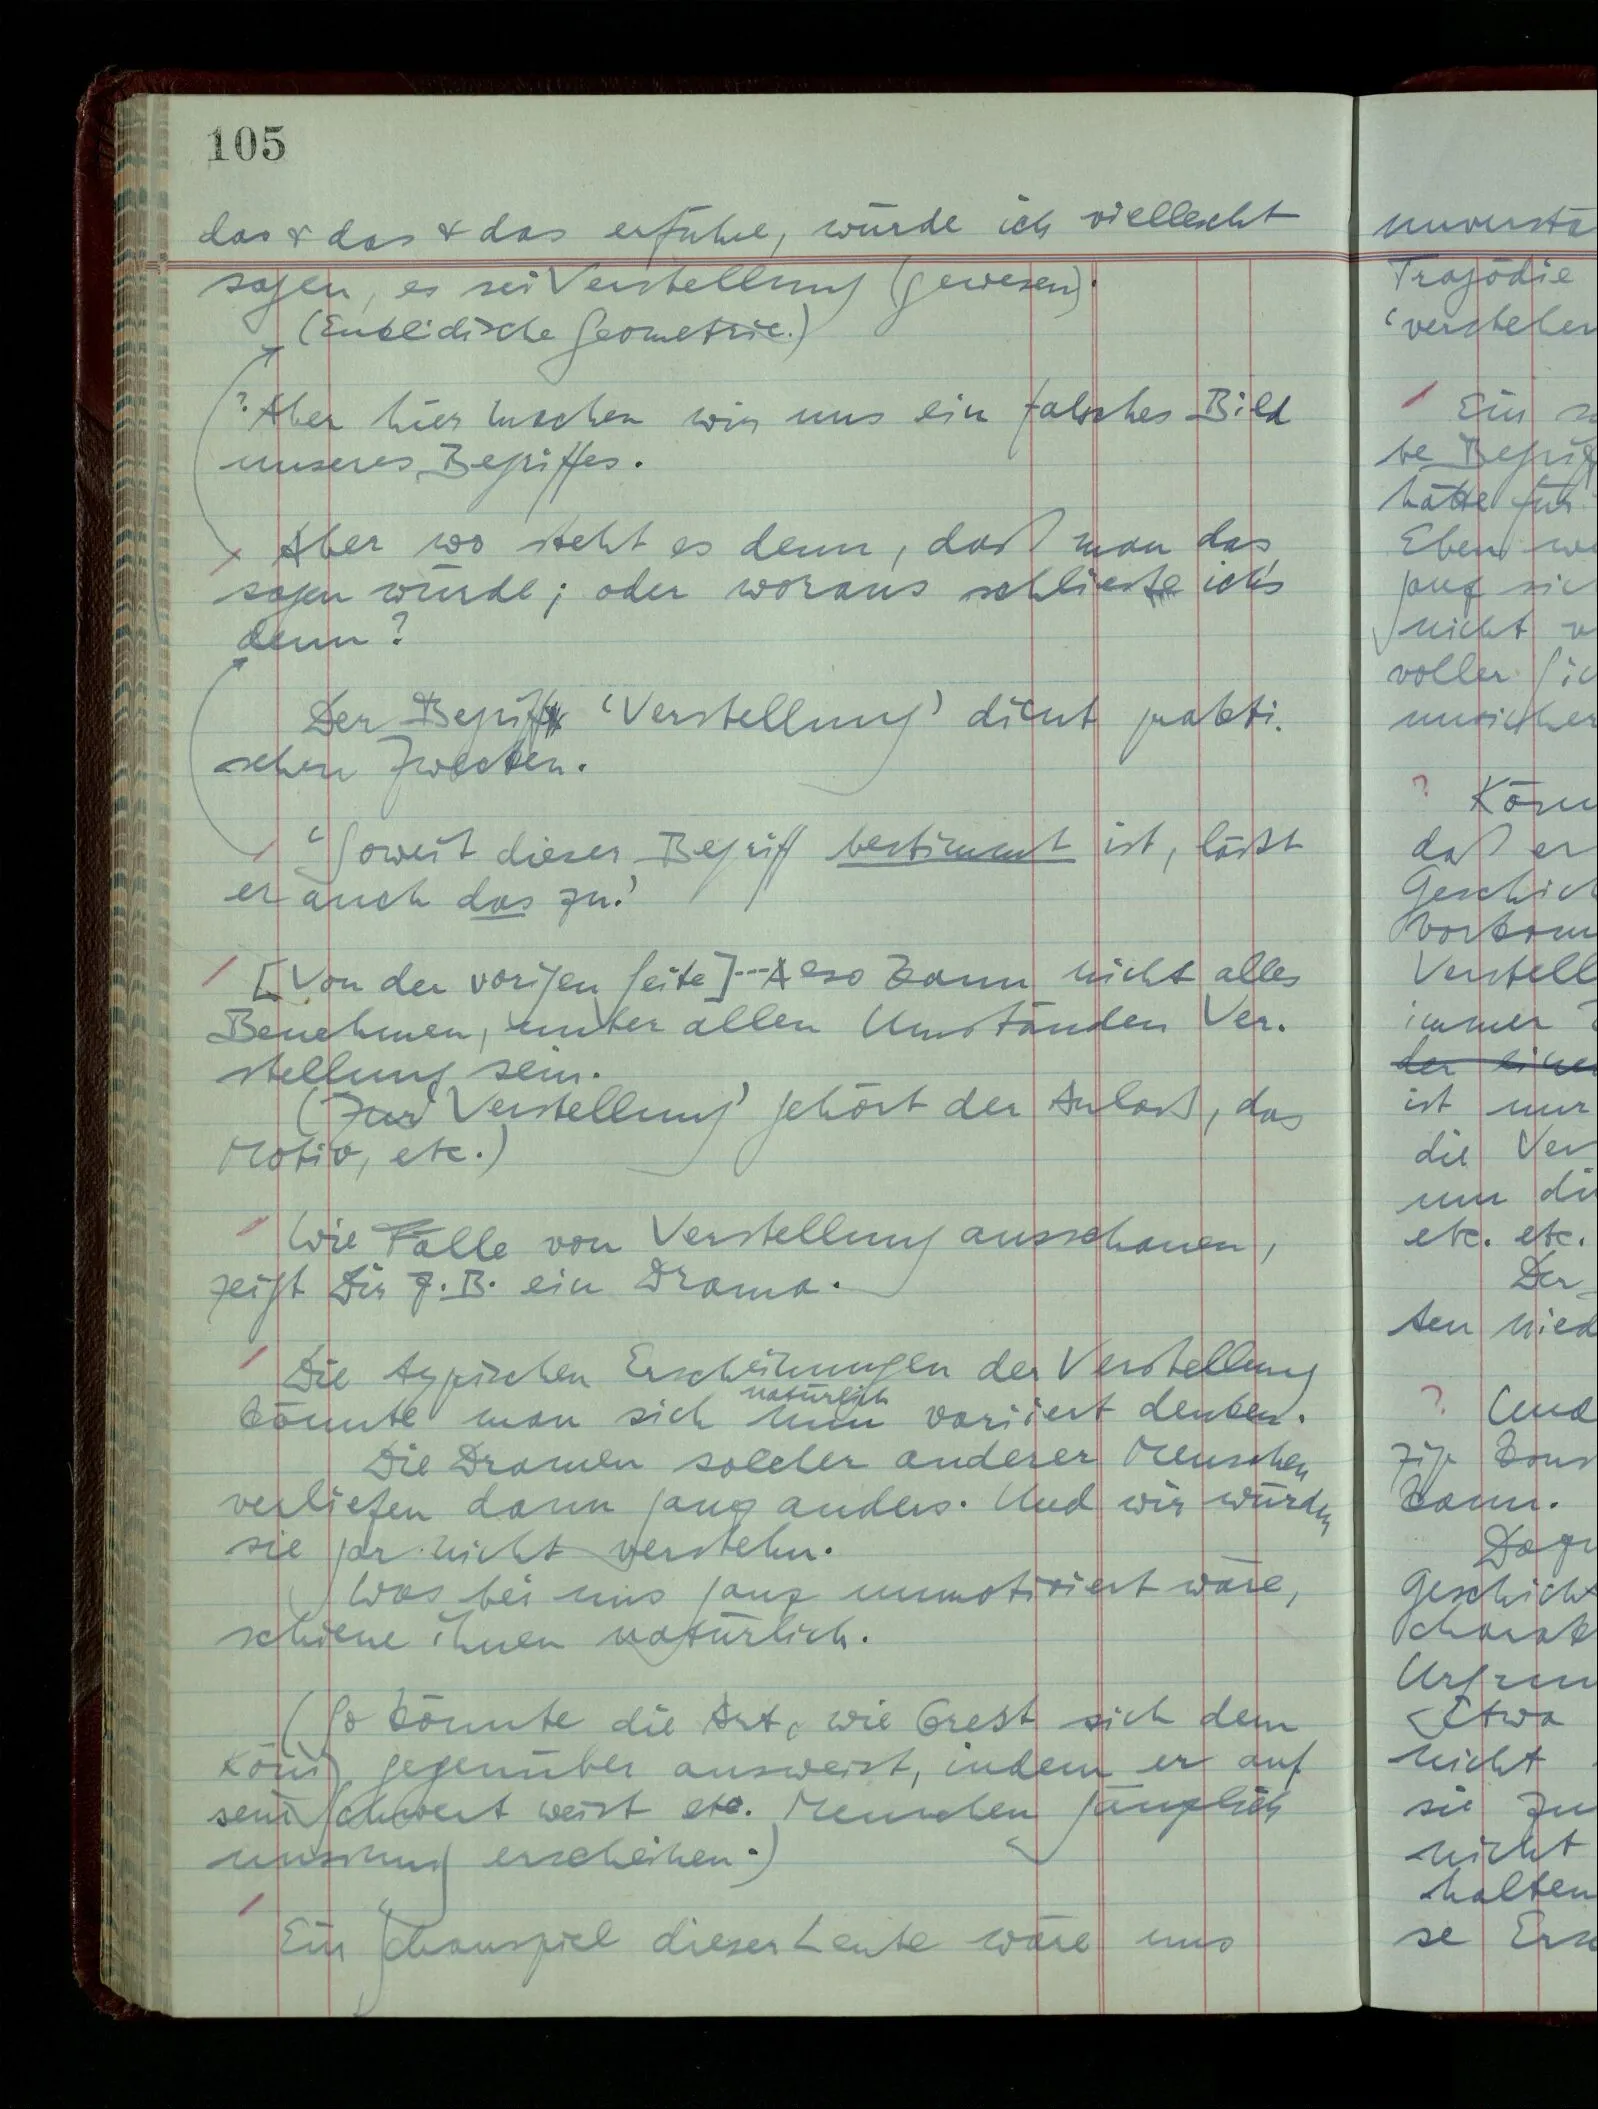 105
das & das & das erführe, würde ich vielleicht
sagen, es sei Verstellung (gewesen).
(Euklidische Geometrie.)
? Aber hier machen wir uns ein falsches Bild
unseres Begriffes.
Aber wo steht es denn, daß man das
sagen würde; oder woraus schließe ich's
denn?
Der Begriff ‘Verstellung’ dient prakti-
schen Zwecken.
‘Soweit dieser Begriff bestimmt ist, läßt
er auch das zu.’
/ [Von der vorigen Seite] --- Also kann nicht alles
Benehmen, unter allen Umständen Ver-
stellung sein.
(Zur ‘Verstellung’ gehört der Anlaß, das
Motiv, etc.)
/ Wie Fälle von Verstellung ausschauen,
zeigt Dir z.B. ein Drama.
/ Die typischen Erscheinungen der Verstellung
natürlich
könnte man sich nun variiert denken.
Die Dramen solcher anderer Menschen
verliefen dann ganz anders. Und wir würden
sie gar nicht verstehn.
Was bei uns ganz unmotiviert wäre,
schiene ihnen natürlich.
(So könnte die Art, wie Orest sich dem
König gegenüber ausweist, indem er auf
sein Schwert weist etc. Menschen gänzlich
unsinnig erscheinen.)
/
Ein Schauspiel dieser Leute wäre uns
Tragödie
‘verstehen
/ Ein
be
hätte für
Eben
ganz
nicht
voller
unsicher
?
daß er
Verstell
immer
ist nur
die
um
etc. etc.
Der
ten
? Und
zig
kann.
Etwa
nicht
sie zu
nicht
halten
se